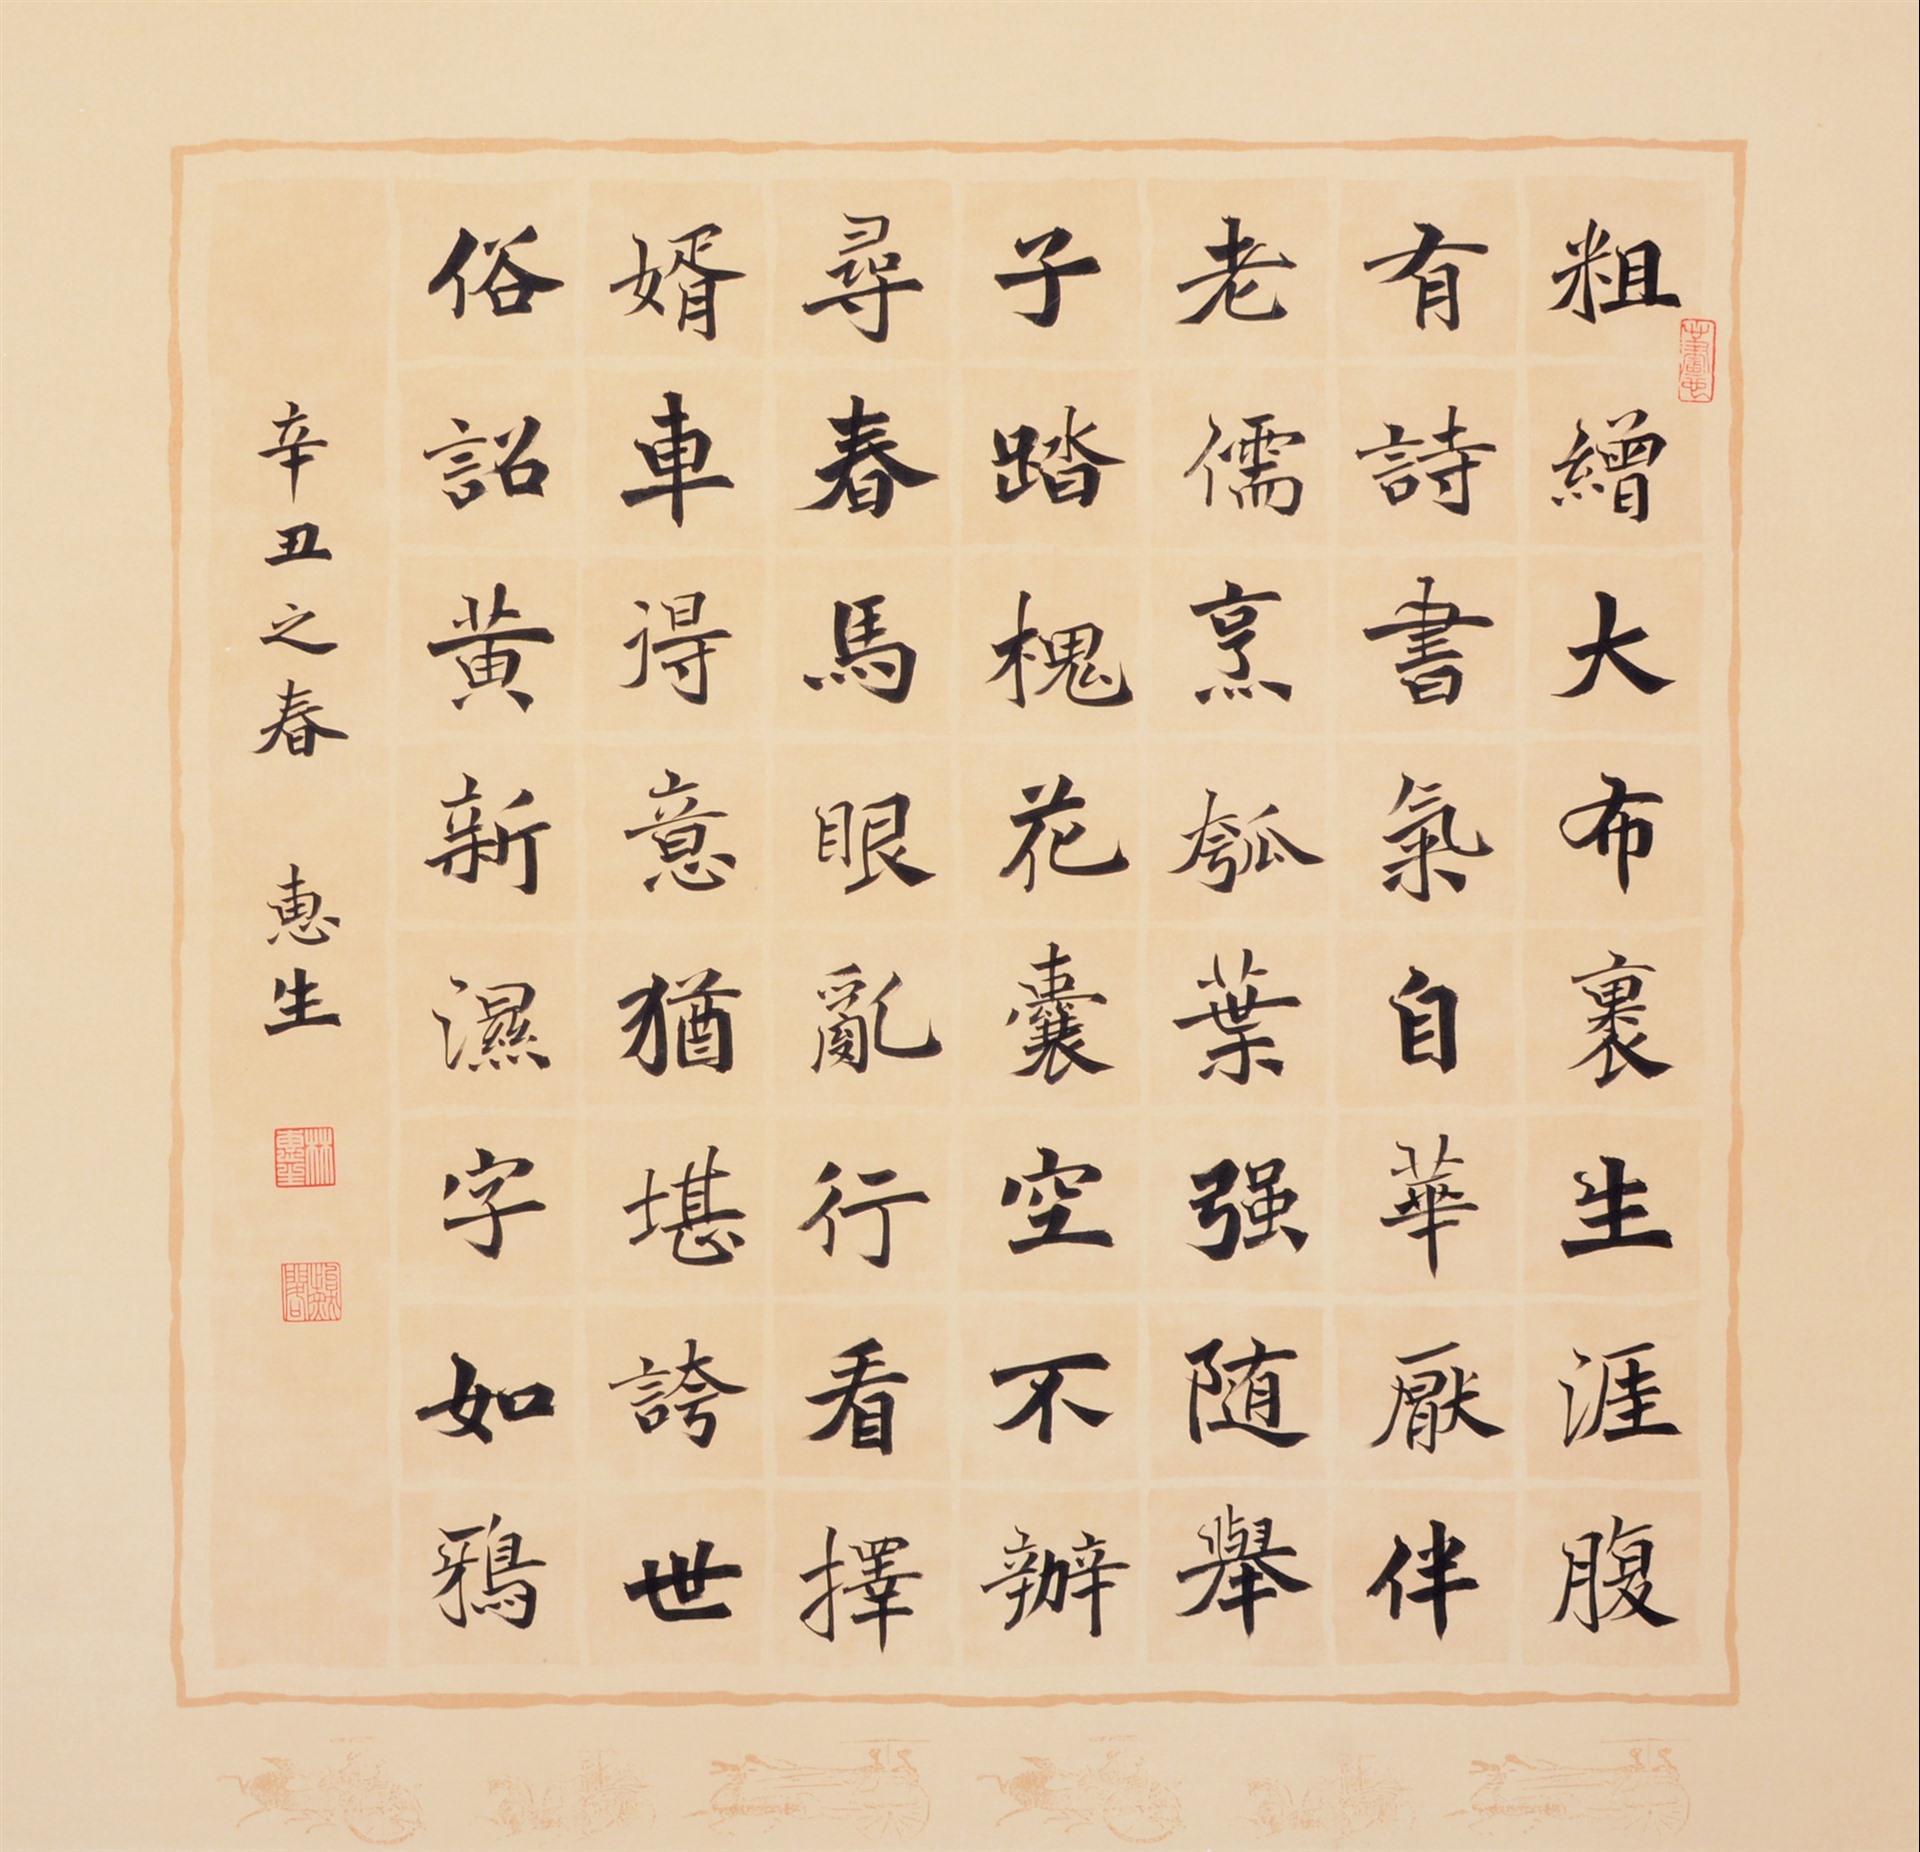 粗繒大布裹生涯腹
有詩書氣自華厭伴
老儒烹瓠葉强随舉
子踏槐花囊空不辦
尋春馬眼亂行看擇
婿車得意猶堪誇世
俗詔黄新濕字如鴉
辛丑之春 惠生
林惠生